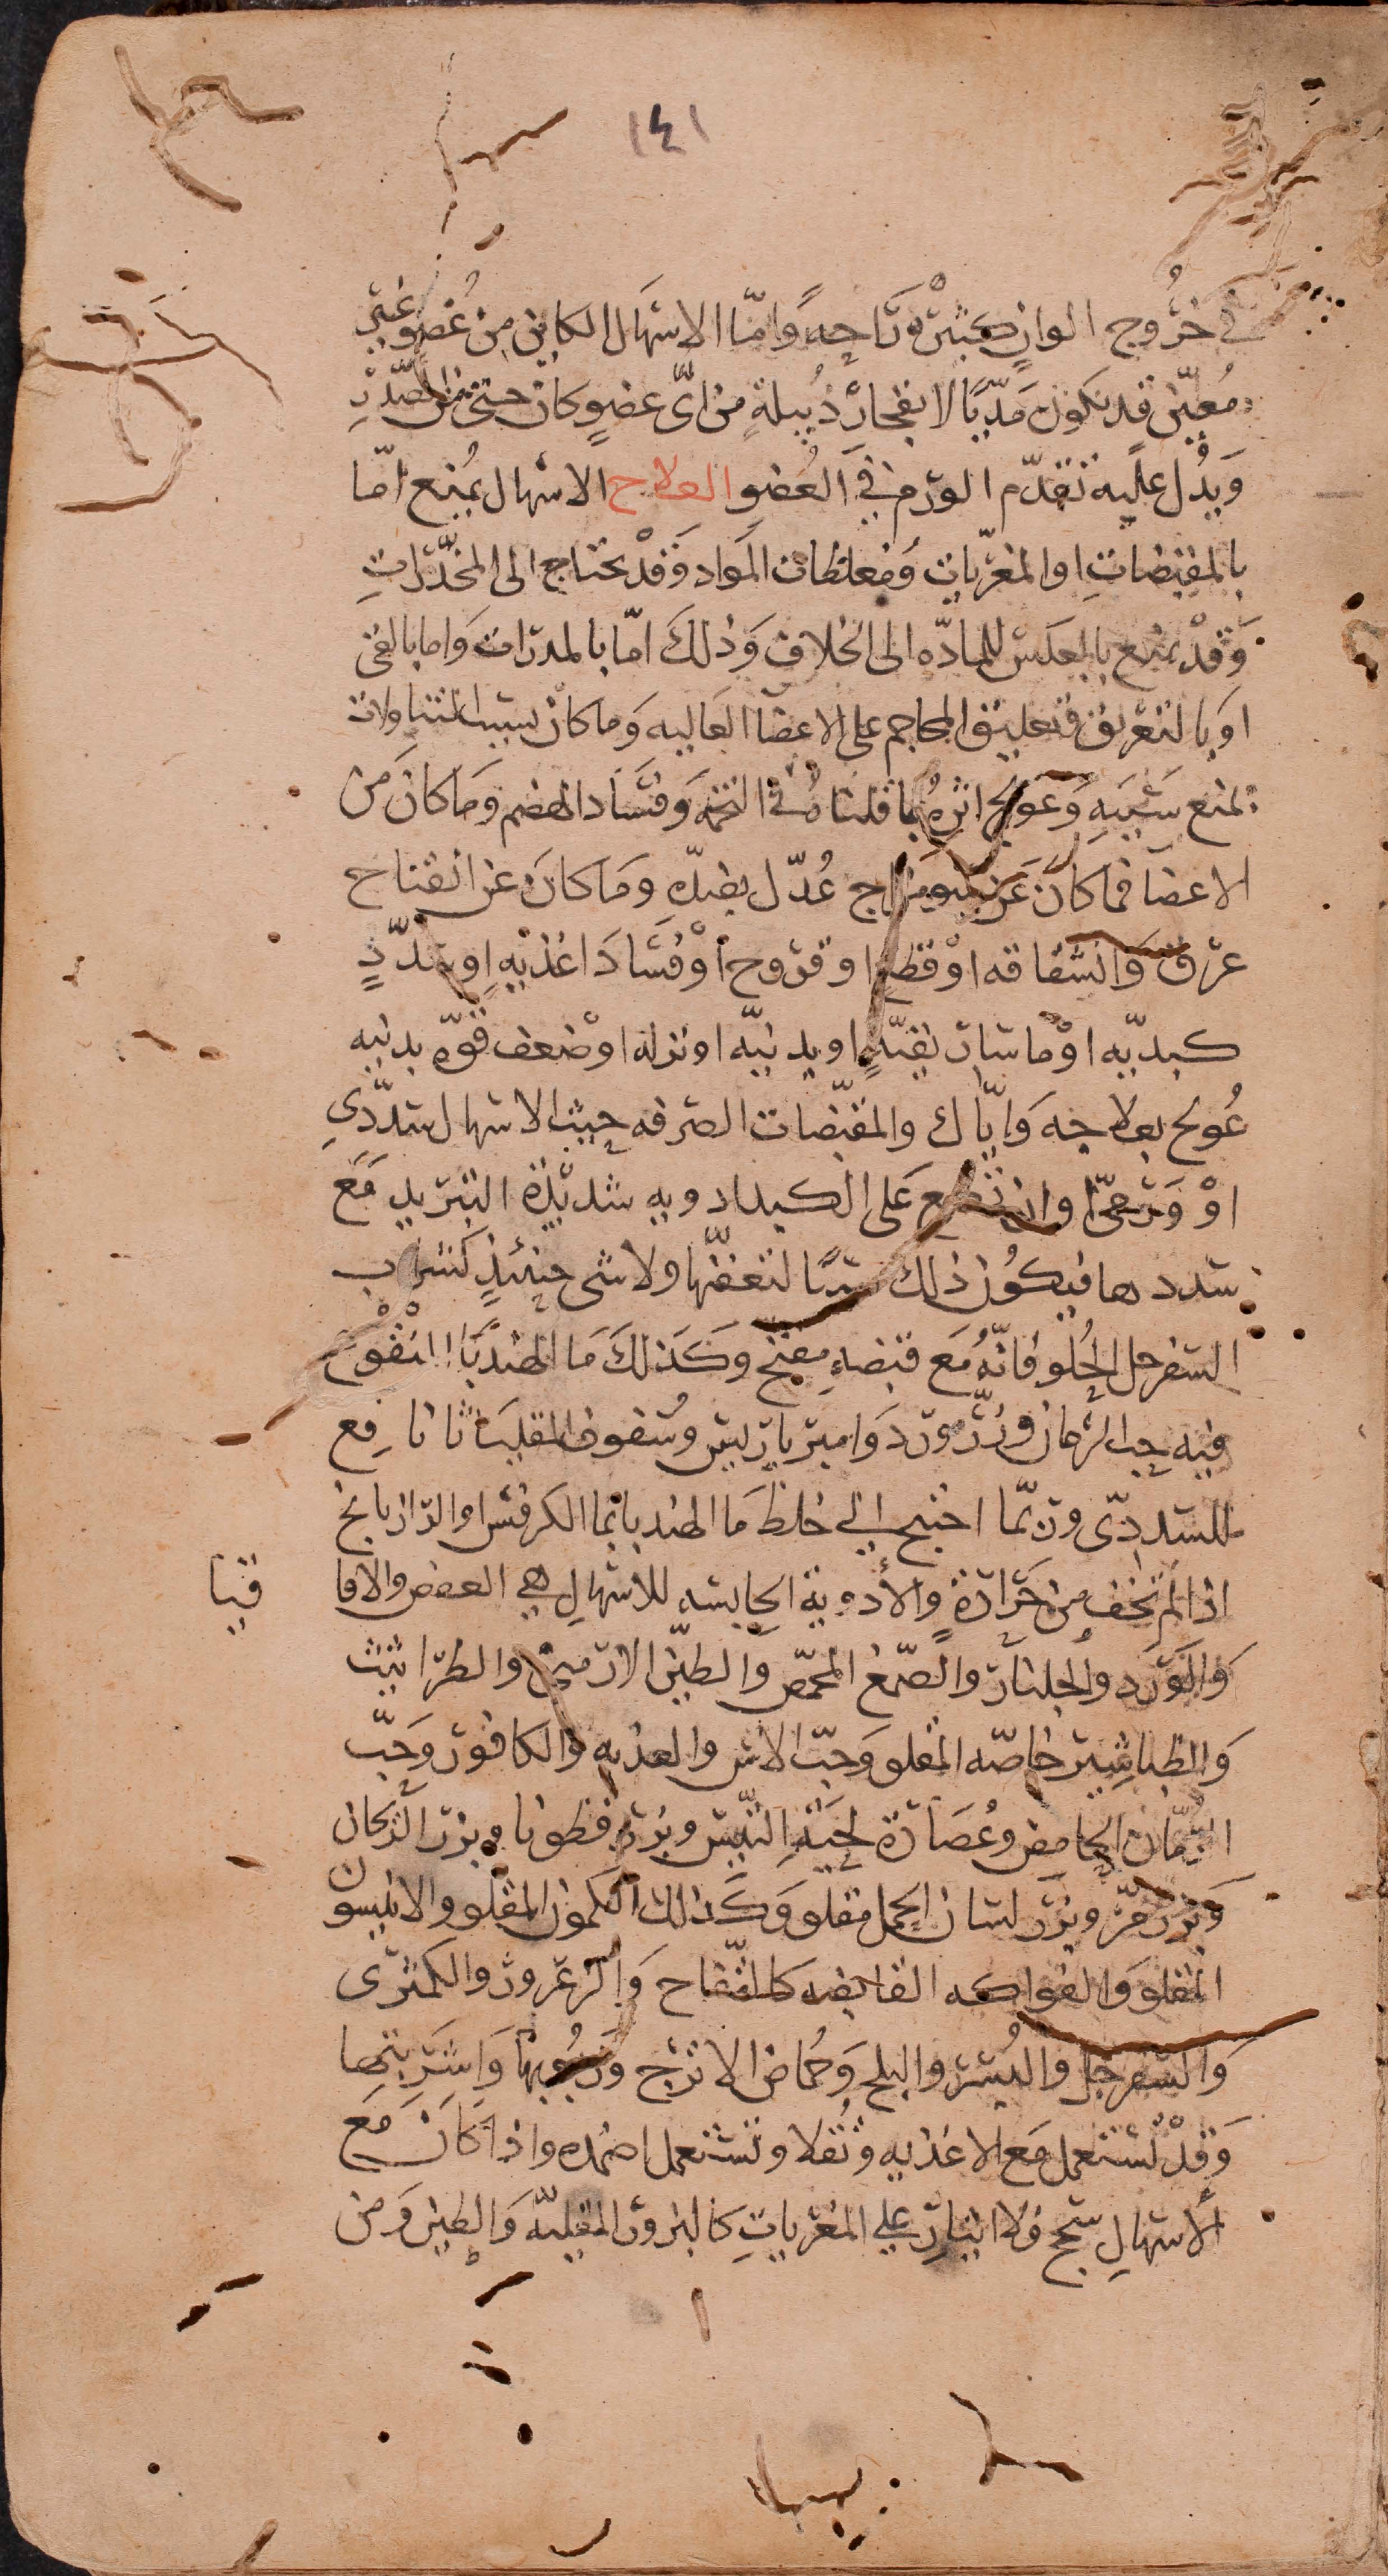 ١٤١
في خروج الوان كثيرة رَاحةً وَامّا الاسهال الكاين من عُضو غير
مُعيّن قد يكون مدّيًا لانفجار دُبيلةٍ من ايّ عضوٍ كان حتى من الصّدر
وَيدُل عليه تقدّم الورم في العُضوِ العلاج الاسهال يُمنع امّا
بالمقبضاتِ او المغرّيات وَمغلظات المواد وَقدْ يحتاج الى المخدّراتِ
وَقدْ يمنع بالعكس للمادّه الى الخلاف وَذلكَ امّا بالمدرّات وَاما بالقى
اوَبالتعريق وتعليق المحاجم على الاعضا العَاليه وَما كان بسبب المتناولات
مُنع سَببَهِ وَعولج اثرهُ بما قلناهُ في التخمَه وَفسَاد الهضم وَمَا كانَ من
الاعضا فما كان عَن سو مزاج عُدّل بضدّه ومَا كانَ عن انفتاح
عرق وَانشقاقه اوْ قطع او قروح أوْ فُسَادَ اغذيهٍ او سُدَدٍ
كبديّه اوْ ماساريقيّهٍ او بدنيّه او نزله اوْ ضعف قوّه بدنيه
عُولج بعلاجه وَايّاك والمقبّضات الصرفه حيث الاسهال سدّدي
اوْ وَرَميّ وان تضع عَلى الكبد ادويه شديْدة التبريد مَع
سددها فيكون ذلك سببًا لتعفنّها ولا شى حينئذٍ كشراب
السفرجل الحُلو فانّهُ مَع قبضهِ مفتح وَكذلكَ مَا الهندبَا المنقوع
فيه حب الرّمان وزرّ وردَ وَامير باريس وسُفوف المقلياثا نافع
للسددّى وربّما احتيج الي خلط مَا الهندبا بما الكرفس او الرّازيانج
اذا لم تخف من حَرَارةٍ والأدوية الحابسه للاسهالِ هي العفص والاقا
قيا
وَالوَرد والجلنار والصّمغ المحمّص وَالطيْن الارمنى والطراثيث
وَالطباشير خاصّه المقلو وَحبّ الاس والعذبه وَالكافور وَحَبّ
الرّمان الحامض وعُصَارة لحيَة التيْس وبزر قطونا وبزر الرّيحان
وَبزر مَرّ وبزر لسان الحمل مقلو وَكذلك الكمون المقلو والانيسون
المقلو وَالفواكه القابضه كالتفّاح وَالزعرور والكمثرى
وَالسّفرجل والبُسر والبلح وَحُماض الاترج ورُبُوبها وَاشرَبتها
وَقدْ تُستعمل مَع الاغذيه وَنُقلا وتستعمل اضمده واذا كانَ مَع
الأسهالِ سحج فلا ايثار علي المغرّياتِ كالبزور المقليّه وَالطين وَمن